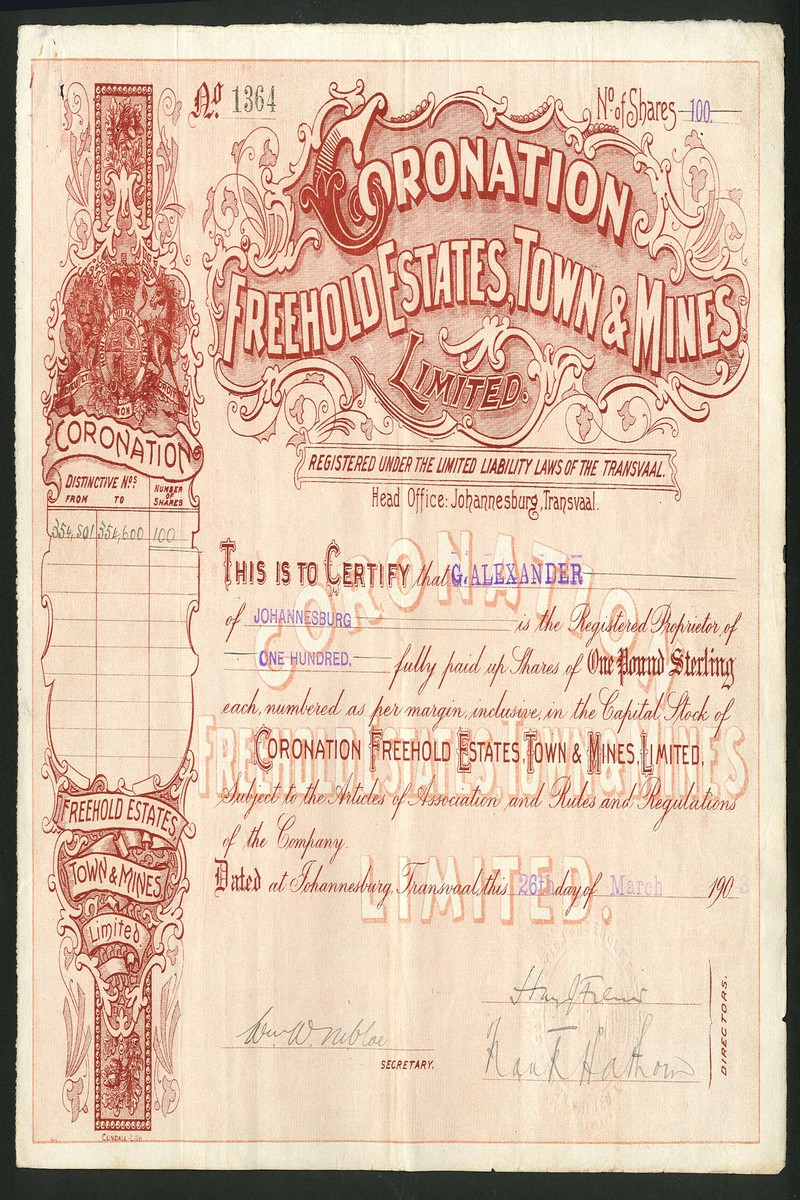 Nº. 1364
Nº. of Shares 100.
CORONATION
FREEHOLD ESTATES, TOWN & MINES
LIMITED.
REGISTERED UNDER THE LIMITED LIABILITY LAWS OF THE TRANSVAAL.
Head Office: Johannesburg, Transvaal.
CORONATION
DISTINCTIVE Nºs
FROM TO
NUMBER OF SHARES
354,501 354,600 100
THIS IS TO CERTIFY that G. ALEXANDER
of JOHANNESBURG is the Registered Proprietor of
ONE HUNDRED. fully paid up Shares of One Pound Sterling
each, numbered as per margin, inclusive, in the Capital Stock of
CORONATION FREEHOLD ESTATES, TOWN & MINES, LIMITED,
Subject to the Articles of Association and Rules and Regulations
of the Company.
Dated at Johannesburg, Transvaal, this 26th day of March 1903
CORONATION
FREEHOLD ESTATES, TOWN & MINES
LIMITED.
FREEHOLD ESTATES,
TOWN & MINES
Limited.
Wm W. Nibloe
SECRETARY.
DIRECTORS.